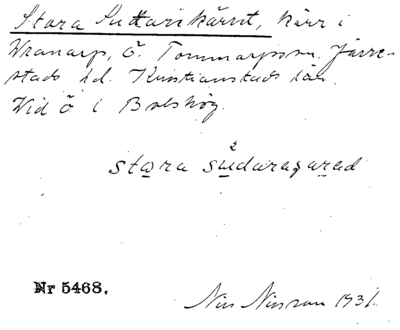 Stora Suttarekärret, kärr i
Vranarp, Ö. Tommarpssn. Järre-
stads hd. Kristianstads län.
Vid ö i Bolshög.
stora südaraɡarad
Nr 5468.
Nils Nilsson 1931.